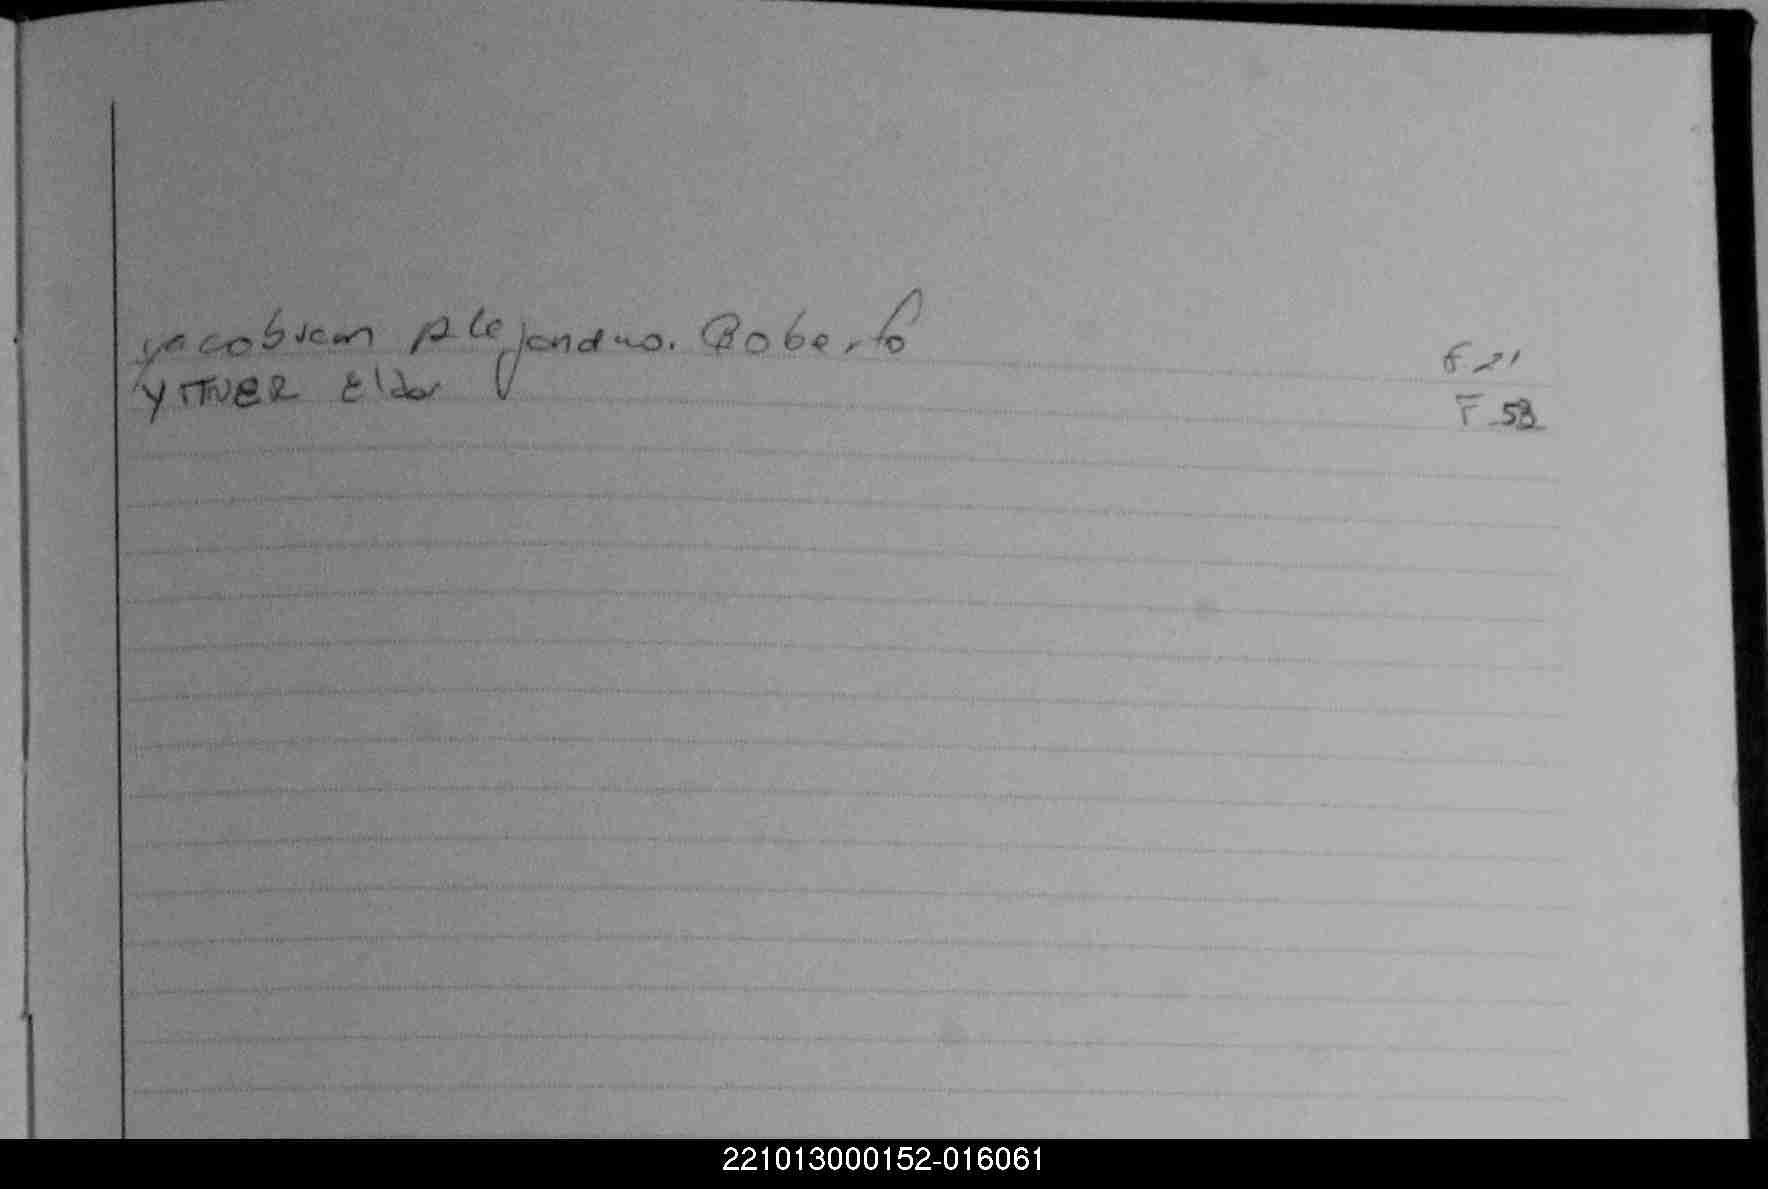 yacobsen Alejandro. Roberto F 21
YITNER Eldor F 53
221013000152-016061